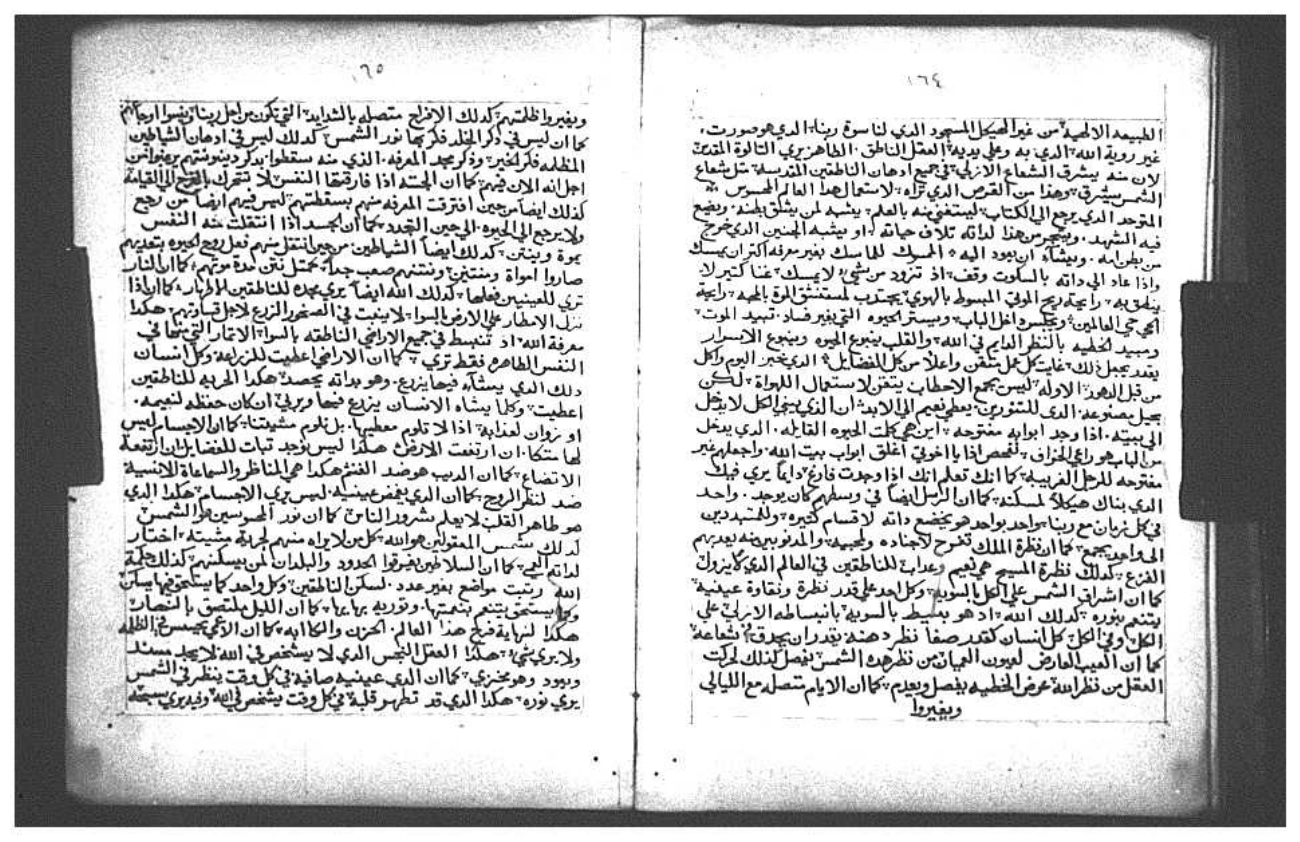 ١٦٤
الطبيعه الالهيه من غير الهيكل المسجود الدي لناسوة ربنا الدي هو صورت
غير روية الله الدي به وعلي يديه العقل الناطق الظاهر يري التالوة المقدس
لان منه يشرق الشعاع الازلي في جميع ادهان الناطقين المقدسه مثل شعاع
الشمس يشرق وهدا من القرص الدي تراه لاستعمال هدا العالم المحسوس
المتوحد الدي يرجع الي الكتاب ليستغني منه بالعلم يشبه لمن يشق بطنه ويضع
فيه الشهد من هدا لداته تلاف حياته او يشبه الجنين الدي خرج
من بطن امه ويشاء ان يعود اليه المسوك للماسك بغير معرفه اكتر ان يمسك
وادا عاد الي داته بالسكوت وقف اد تزود من شي لا يمسك غنا كتير لا
ينطق به رايحة ريح الموتي المبسوط بالهوي يجتدب لمستنشق المرة بالمحبه رايحة
الحي محي العالمين وبجلوسه داخل الباب ويستر الحيوه التي بغير فساد تبيد الموت
ومبيد الخطيه بالنظر الدايم في الله والقلب ينبوع الحيوه وينبوع الاسرار
يقدر يجعل دلك غايت كل عمل متقن واعلا من كل الفضايل الدي خبز اليوم واكل
من قبل الدهور الاوله ليس يجمع الاحطاب يتغني لاستعمال اللهواة لكن
يحيل مصنوعه الدي للتنورين يعطي نعيم الي الابد ان الدي يبني الكل لا يدخل
الي بيته ادا وجد ابوابه مفتوحه اين هي كلمت الحيوه القايله الدي يدخل
من الباب هو راعي الخراف لنفحص ادا يا اخوتي اغلق ابواب بيت الله واجعلهم غير
مفتوحه للرجل الغريبه كما انك تعلم انك ادا وجدت فارغ دايما يري فيك
الدي بناك هيكلا لمسكنه كما ان الرسل ايضا في وسطهم كان يوجد واحد
في كل زمان مع ربنا واحد بواحد هو يخضع داته لاقسام كتيره وللمتبددين
الي واحد يجمع كما ان نظرة الملك تفرح لاجناده ولمحبيه والمدنوبين منه يعد بهم
الفزع كدلك نظرة المسيح هي نعيم وعداب للناطقين في العالم الدي لا يزول
كما ان اشراق الشمس علي الكل بالسويه وكل احد علي قدر نظرة ونقاوة عينيه
يتنعم بنوره كدلك الله اد هو يبسط بالسويه بانبساطه الازلي علي
الكل وفي الكل كل انسان كقدر صفا نظر دهنه يقدر ان يحدق بشعاعه
كما ان العيب العارض لعيون العميان من نظر هده الشمس يفصل كدلك لحركت
العقل من نظر الله عوض الخطيه يفصل ويعدم كما ان الايام متصله مع الليالي
ويغيروا
١٦٥
ويغيروا ظلمتهم كدلك الافراح متصله بالشدايد التي تكون من اجل ربنا وينسوا اوجاعهم
كما ان ليس في دكر الخلد فكر بها نور الشمس كدلك ليس في ادهان الشياطين
المظلمه فكر الخير ودكر مجد المعرفه الدي منه سقطوا بدكر دينونتهم يرهبوا من
اجل انه الان فيهم كما ان الجسته ادا فارقتها النفس لا تتحرك بالفرح الي القيامه
كدلك ايضا من حين افترقت المعرفه منهم بسقطتهم ليس فيهم ايضا من رجع
ولا يرجع الي الحيوه الي حين التجدد كما ان الجسد ادا انتقلت منه النفس
يموة وينتن كدلك ايضا الشياطين من حين انتقل منهم فعل روح الحيوه بتعديهم
صاروا امواة ومنتنين ونتنهم صعب جدا محتمل نتن مدة موتهم كما ان النار
تري للعينيين فعلها كدلك الله ايضا يري مجده للناطقين الاطهار كما ان ادا
نزل الامطار علي الارض بالسوا لا ينبت في الصخور الزرع لاجل قساوتهم هكدا
معرفة الله اد تنبسط في جميع الاراضي الناطقه بالسوا الاتمار التي منها في
النفس الطاهره فقط تري كما ان الاراضي اعطيت للزراعه وكل انسان
دلك الدي يشاه فيها يزرع وهو بداته يحصد هكدا الحريه للناطقين
اعطيت وكلما يشاه الانسان يزرع فيها ويربي ان كان حنطه لنعيمه
او زوان لعدابه ادا لا تلوم معطيها بل تلوم مشيتنا كما ان الاجسام ليس
لها متكا ان ارتفعت الارض هكدا ليس يوجد تبات للفضايل ان ارتفعه
الاتضاع كما ان الديب هو ضد الغنم هكدا هي المناظر والسماعاة الانسيه
ضد لنظر الروح كما ان الدي يغمض عينيه ليس يري الاجسام هكدا الدي
هو طاهر القلب لا يعلم بشرور الناس كما ان نور المحسوسين هو الشمس
كدلك شمس المعقولين هو الله كل من لا يراه منهم لحرية مشيته اختار
لداته العمي كما ان السلاطين يفرقوا الحدود والبلدان لمن يسكنهم كدلك حكمة
الله رتبت مواضع بغير عدد لسكن الناطقين وكل واحد كما يستحق فيها يسكن
وكما يستحق يتنعم بنعمتها ونوريه يراها كما ان الليل ملتصق بالنهار
هكدا لنهاية فرح هدا العالم الحزن والكاابه كما ان الاعمي يحسس في الظلمه
ولا يري شي هكدا العقل النجس الدي لا يشخص في الله لا يجد مسند
ويعود وهو مخزي كما ان الدي عينيه صافيه في كل وقت ينظر في الشمس
يري نوره هكدا الدي قد تطهر قلبه في كل وقت يشخص في الله وفيه يري سبحته